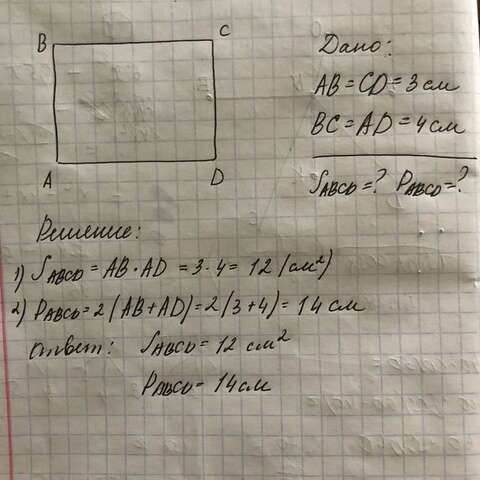 B C
A D
Дано:
AB = CD = 3 см
BC = AD = 4 см
S_ABCD = ? P_ABCD = ?
Решение:
1) S_ABCD = AB · AD = 3 · 4 = 12 (см²)
2) P_ABCD = 2 (AB + AD) = 2 (3 + 4) = 14 см
Ответ: S_ABCD = 12 см²
P_ABCD = 14 см